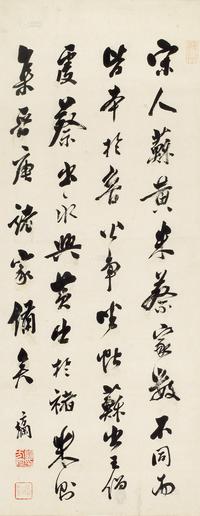 宋人蘇黃米蔡家數不同而
皆本於魯公爭坐帖蘇出王僧
虔蔡出永興黃出於褚米則
集晉唐諸家備矣